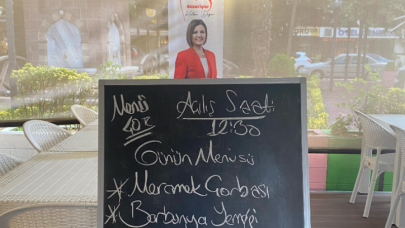 Menü
40₺
Açılış Saati
12:30
Günün Menüsü
* Mercimek Çorbası
* Barbunya Yemeği